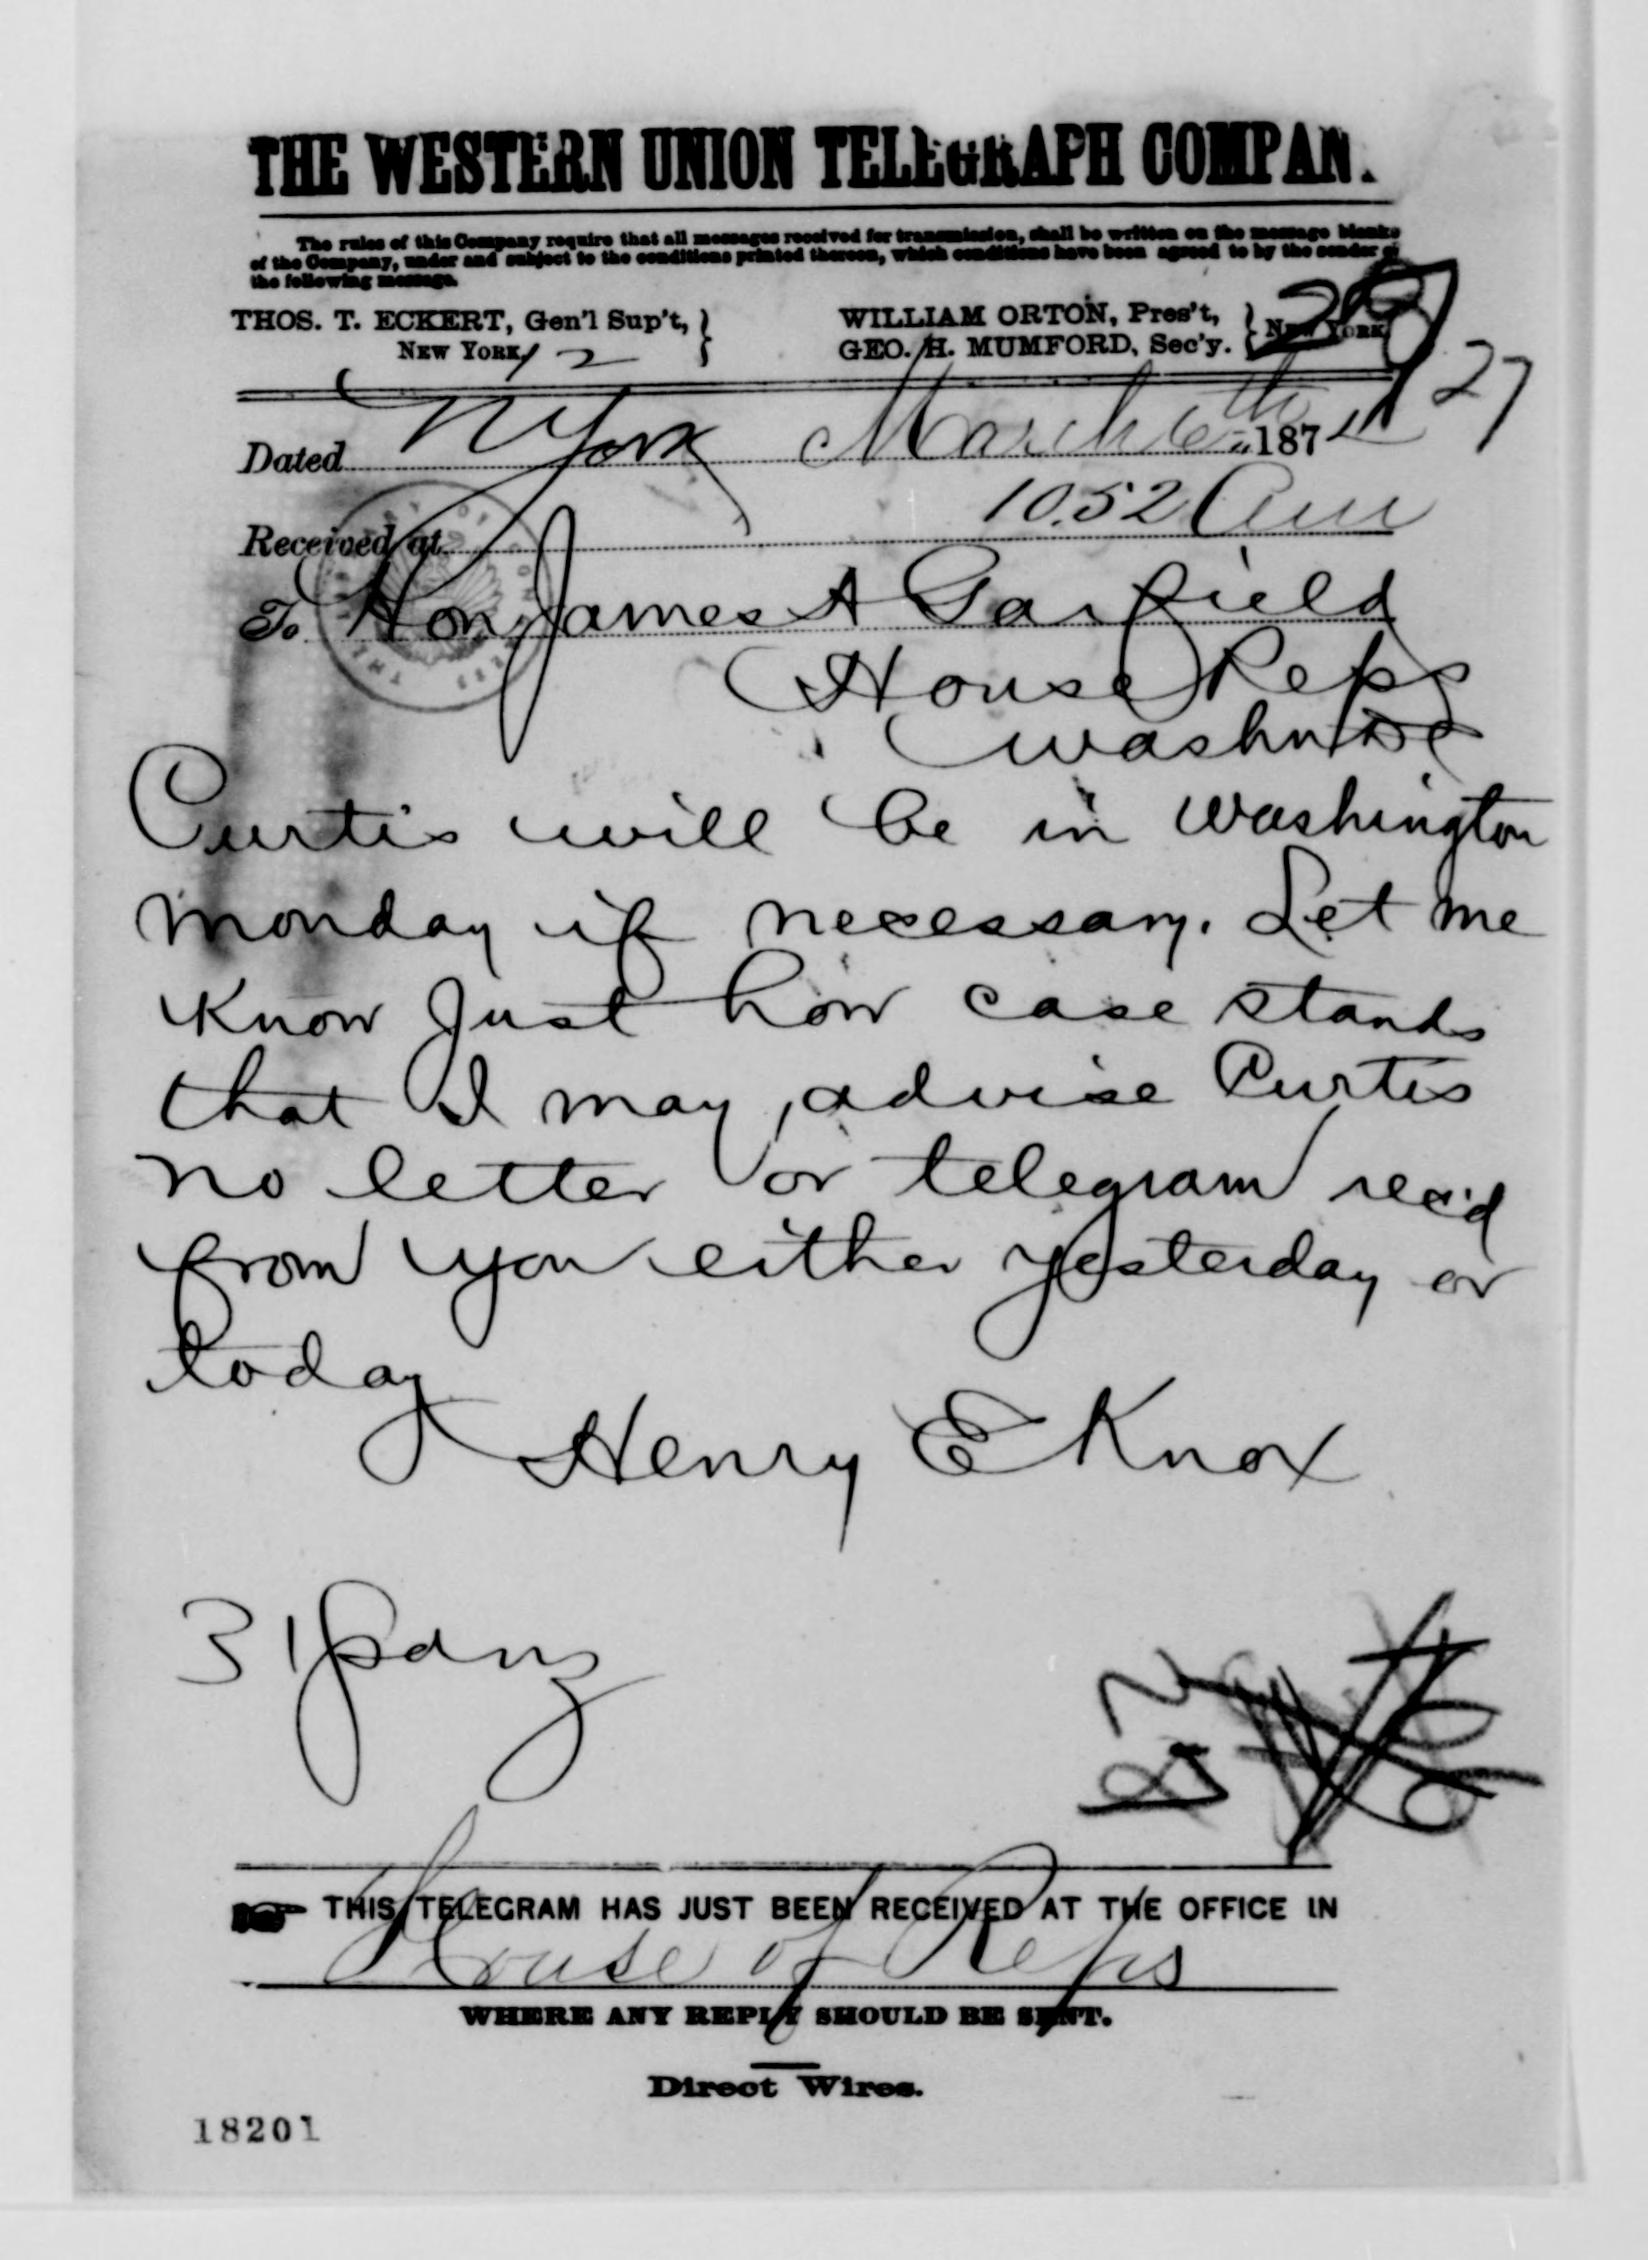 THE WESTERN UNION TELEGRAPH COMPAN
The rules of this Company require that all messages received for transmission, shall be written on the message blanks
of the Company, under and subject to the conditions printed thereon, which conditions have been agreed to by the sender of
the following message.
THOS. T. ECKERT, Gen'l Sup't, WILLIAM ORTON, Pres't,
NEW YORK GEO. H. MUMFORD, Sec'y. NEW YORK
12
27
Dated N York March 6th 187
Received at 10.52 am
To Hon James A Garfield
House Reps
Washn DC
Curtis will be in Washington
monday if necessary. Let me
Know Just how case stands
that I may advise Curtis
no letter or telegram recd
from you either yesterday or
today
Henry E Knox
31
THIS TELEGRAM HAS JUST BEEN RECEIVED AT THE OFFICE IN
House of Reps
WHERE ANY REPLY SHOULD BE SENT.
Direct Wires.
18201